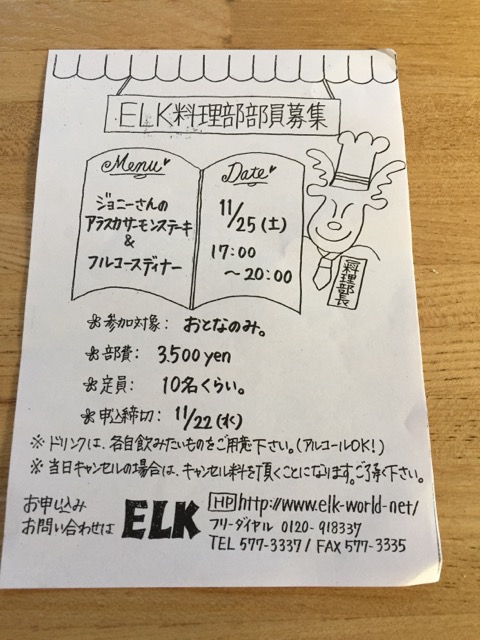 ELK料理部部員募集
Menu
ジョニーさんの
アラスカサーモンステーキ
&
フルコースディナー
Date
11/25(土)
17:00
～20:00
料理部長
参加対象: おとなのみ。
部費: 3.500 yen
定員: 10名くらい。
申込締切: 11/22(水)
※ドリンクは、各自飲みたいものをご用意下さい。(アルコールOK!)
※当日キャンセルの場合は、キャンセル料を頂くことになります。ご了承下さい。
お申し込み
お問い合わせは
ELK
HP http://www.elk-world-net/
フリーダイヤル 0120-918337
TEL 577-3337 / FAX 577-3335